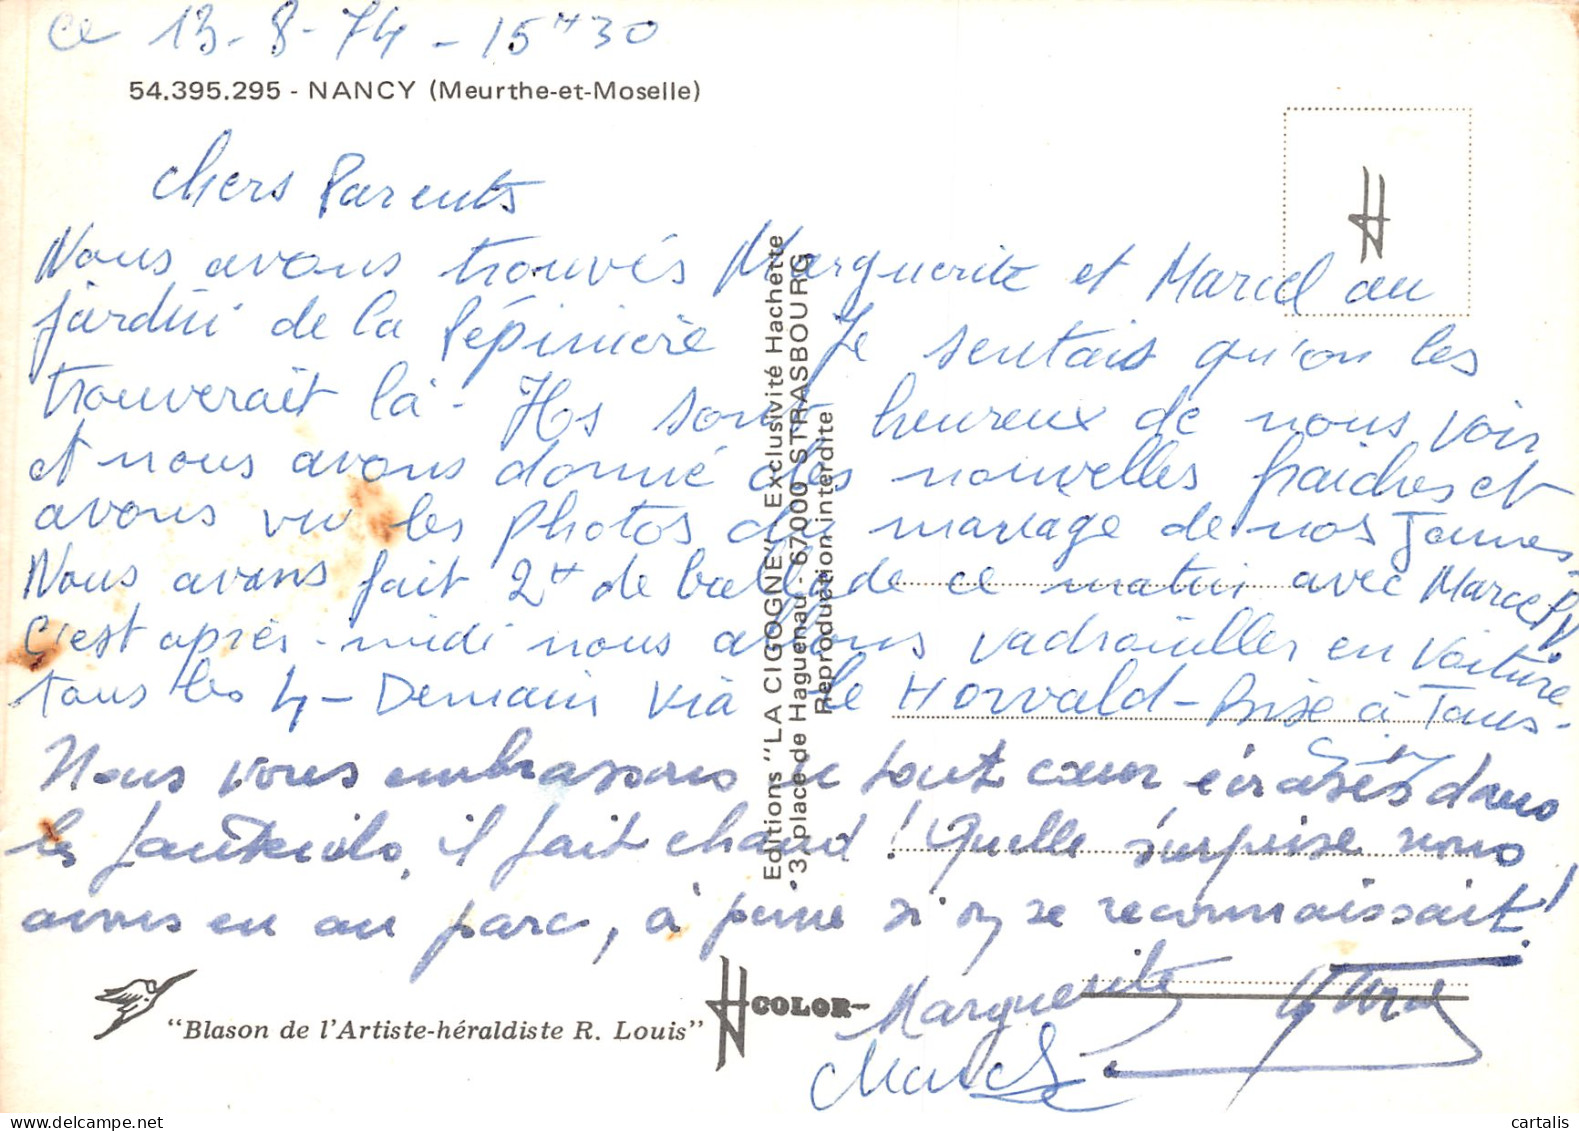 ce 13-8-74 - 15H30
54.395.295 - NANCY (Meurthe-et-Moselle)
Chers Parents
Nous avons trouvés Marguerite et Marcel au
jardin de la Pépinière Je sentais qu'on les
trouverait là - Ils sont heureux de nous voir
et nous avons donné des nouvelles fraiches et
avons vu les photos du mariage de nos
Nous avons fait 2H de ballade ce matin avec Marcel
C'est après-midi nous allons vadrouiller en voiture
tous les 4 - Demain via le Horvald - Bise à Tous -
Nous vous embrassons de tout cœur écrasés dans
les fauteuils, il fait chaud ! Quelle surprise nous
avons eu au parc, à peine si on se reconnaissait !
Marguerite
Marcel
Editions "LA CIGOGNE" Exclusivité Hachette
3, place de Haguenau - 67000 STRASBOURG
Reproduction interdite
"Blason de l'Artiste-héraldiste R. Louis"
COLOR
cartalis